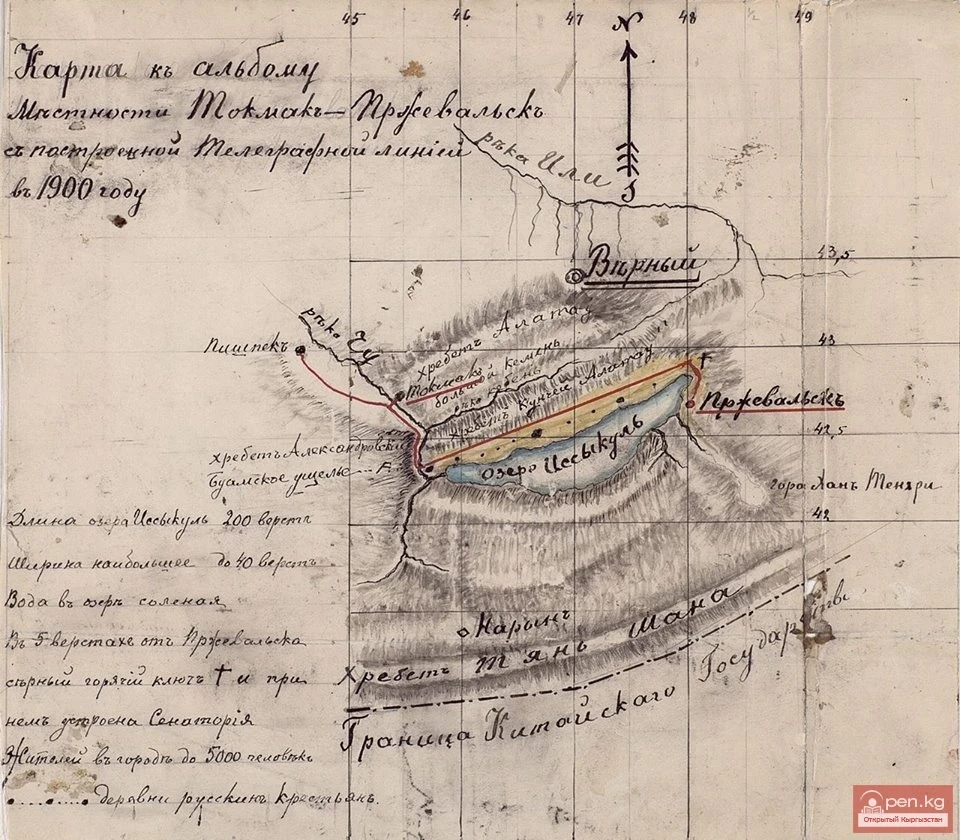 45 46 47 48 49
N
Карта къ альбому
Мѣстности Токмакъ–Пржевальскъ
съ построенной Телеграфной линіей
въ 1900 году
рѣка Или
S
43,5
Вѣрный
хребетъ Алатау
рѣка Чу
Пишпекъ
43
Токмакъ
большой кемень
хребетъ Кунгей Алатау
Пржевальскъ
42,5
хребетъ Александровскій
Буамское ущелье
озеро Иссыкуль
гора Ханъ Тенгри
42
Длина озера Иссыкуль 200 верстъ
Ширина наибольшее до 40 верстъ
Вода въ озерѣ соленая
Въ 5 верстахъ отъ Пржевальска
сѣрный горячій ключъ † и при
немъ устроена Сенаторія
Жителей въ городѣ до 5000 человѣкъ
деревни русскихъ крестьянъ.
Нарынъ
Хребетъ Тянь Шана
Граница Китайскаго Государства
Open.kg
Открытый Кыргызстан